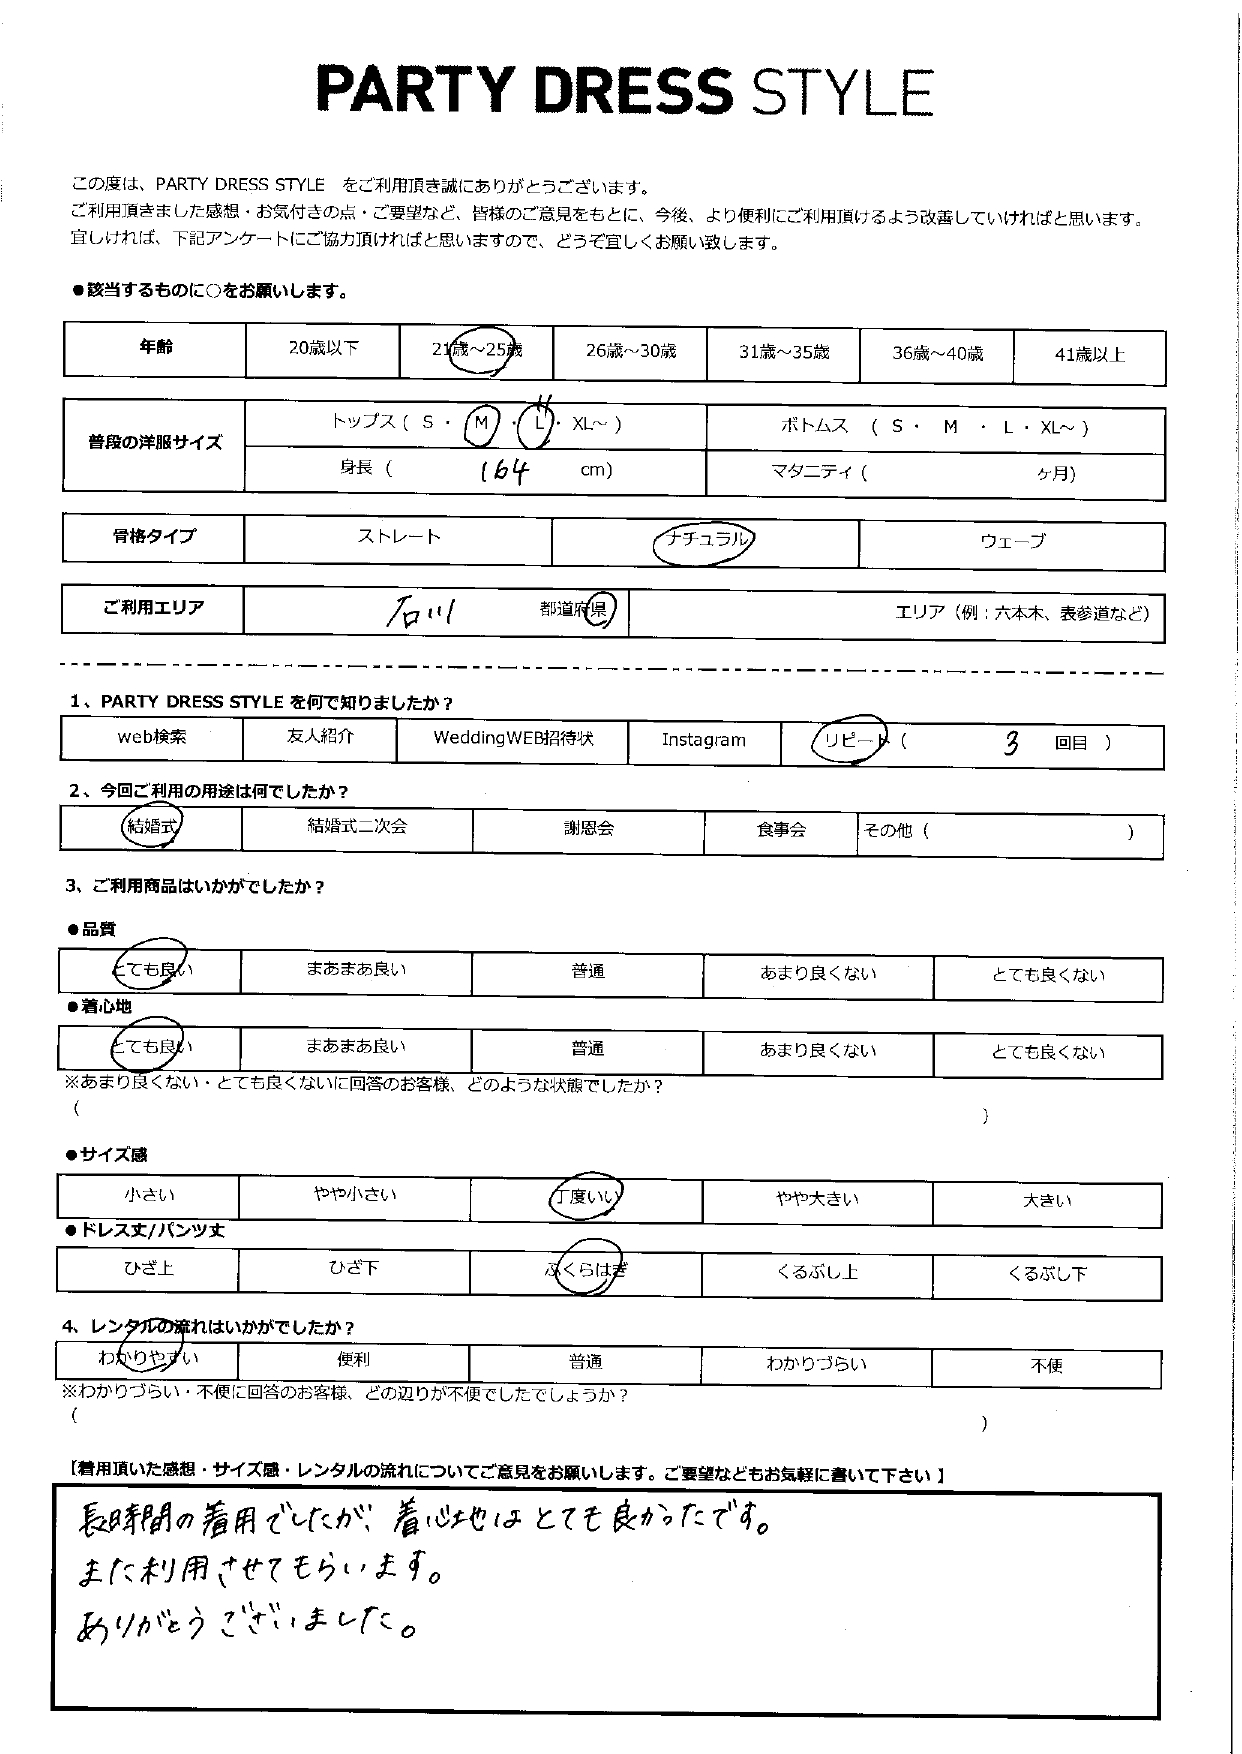 PARTY DRESS STYLE
この度は、PARTY DRESS STYLE をご利用頂き誠にありがとうございます。
ご利用頂きました感想・お気付きの点・ご要望など、皆様のご意見をもとに、今後、より便利にご利用頂けるよう改善していければと思います。
宜しければ、下記アンケートにご協力頂ければと思いますので、どうぞ宜しくお願い致します。
●該当するものに○をお願いします。
年齢 20歳以下 21歳～25歳 26歳～30歳 31歳～35歳 36歳～40歳 41歳以上
普段の洋服サイズ
トップス ( S ・ M ・ L ・ XL～ ) ボトムス ( S ・ M ・ L ・ XL～ )
身長 ( 164 cm) マタニティ ( ヶ月)
骨格タイプ ストレート ナチュラル ウェーブ
ご利用エリア 石川 都道府県 エリア（例：六本木、表参道など）
1、PARTY DRESS STYLE を何で知りましたか？
web検索 友人紹介 WeddingWEB招待状 Instagram リピート ( 3 回目 )
2、今回ご利用の用途は何でしたか？
結婚式 結婚式二次会 謝恩会 食事会 その他 ( )
3、ご利用商品はいかがでしたか？
●品質
とても良い まあまあ良い 普通 あまり良くない とても良くない
●着心地
とても良い まあまあ良い 普通 あまり良くない とても良くない
※あまり良くない・とても良くないに回答のお客様、どのような状態でしたか？
( )
●サイズ感
小さい やや小さい 丁度いい やや大きい 大きい
●ドレス丈/パンツ丈
ひざ上 ひざ下 ふくらはぎ くるぶし上 くるぶし下
4、レンタルの流れはいかがでしたか？
わかりやすい 便利 普通 わかりづらい 不便
※わかりづらい・不便に回答のお客様、どの辺りが不便でしたでしょうか？
( )
【着用頂いた感想・サイズ感・レンタルの流れについてご意見をお願いします。ご要望などもお気軽に書いて下さい 】
長時間の着用でしたが、着心地はとても良かったです。
また利用させてもらいます。
ありがとうございました。